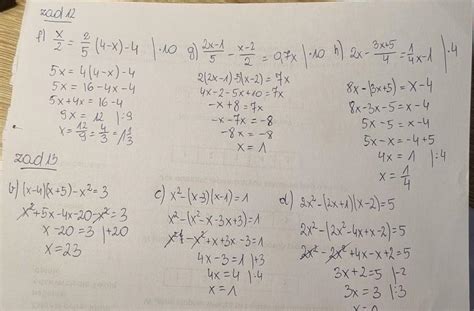 zad 12
f) x/2 = 2/5 (4-x)-4 |·10
5x = 4(4-x)-4
5x = 16-4x-4
5x+4x = 16-4
9x = 12 |:9
x = 12/9 = 4/3 = 1 1/3
g) (2x-1)/5 - (x-2)/2 = 0,7x |·10
2(2x-1)-5(x-2) = 7x
4x-2-5x+10 = 7x
-x+8 = 7x
-x-7x = -8
-8x = -8
x = 1
h) 2x - (3x+5)/4 = 1/4 x - 1 |·4
8x-(3x+5) = x-4
8x-3x-5 = x-4
5x-5 = x-4
5x-x = -4+5
4x = 1 |:4
x = 1/4
zad 13
b) (x-4)(x+5)-x² = 3
x²+5x-4x-20-x² = 3
x-20 = 3 |+20
x = 23
c) x²-(x-3)(x-1) = 1
x²-(x²-x-3x+3) = 1
x²-x²+x+3x-3 = 1
4x-3 = 1 |+3
4x = 4 |:4
x = 1
d) 2x²-(2x+1)(x-2) = 5
2x²-(2x²-4x+x-2) = 5
2x²-2x²+4x-x+2 = 5
3x+2 = 5 |-2
3x = 3 |:3
x = 1